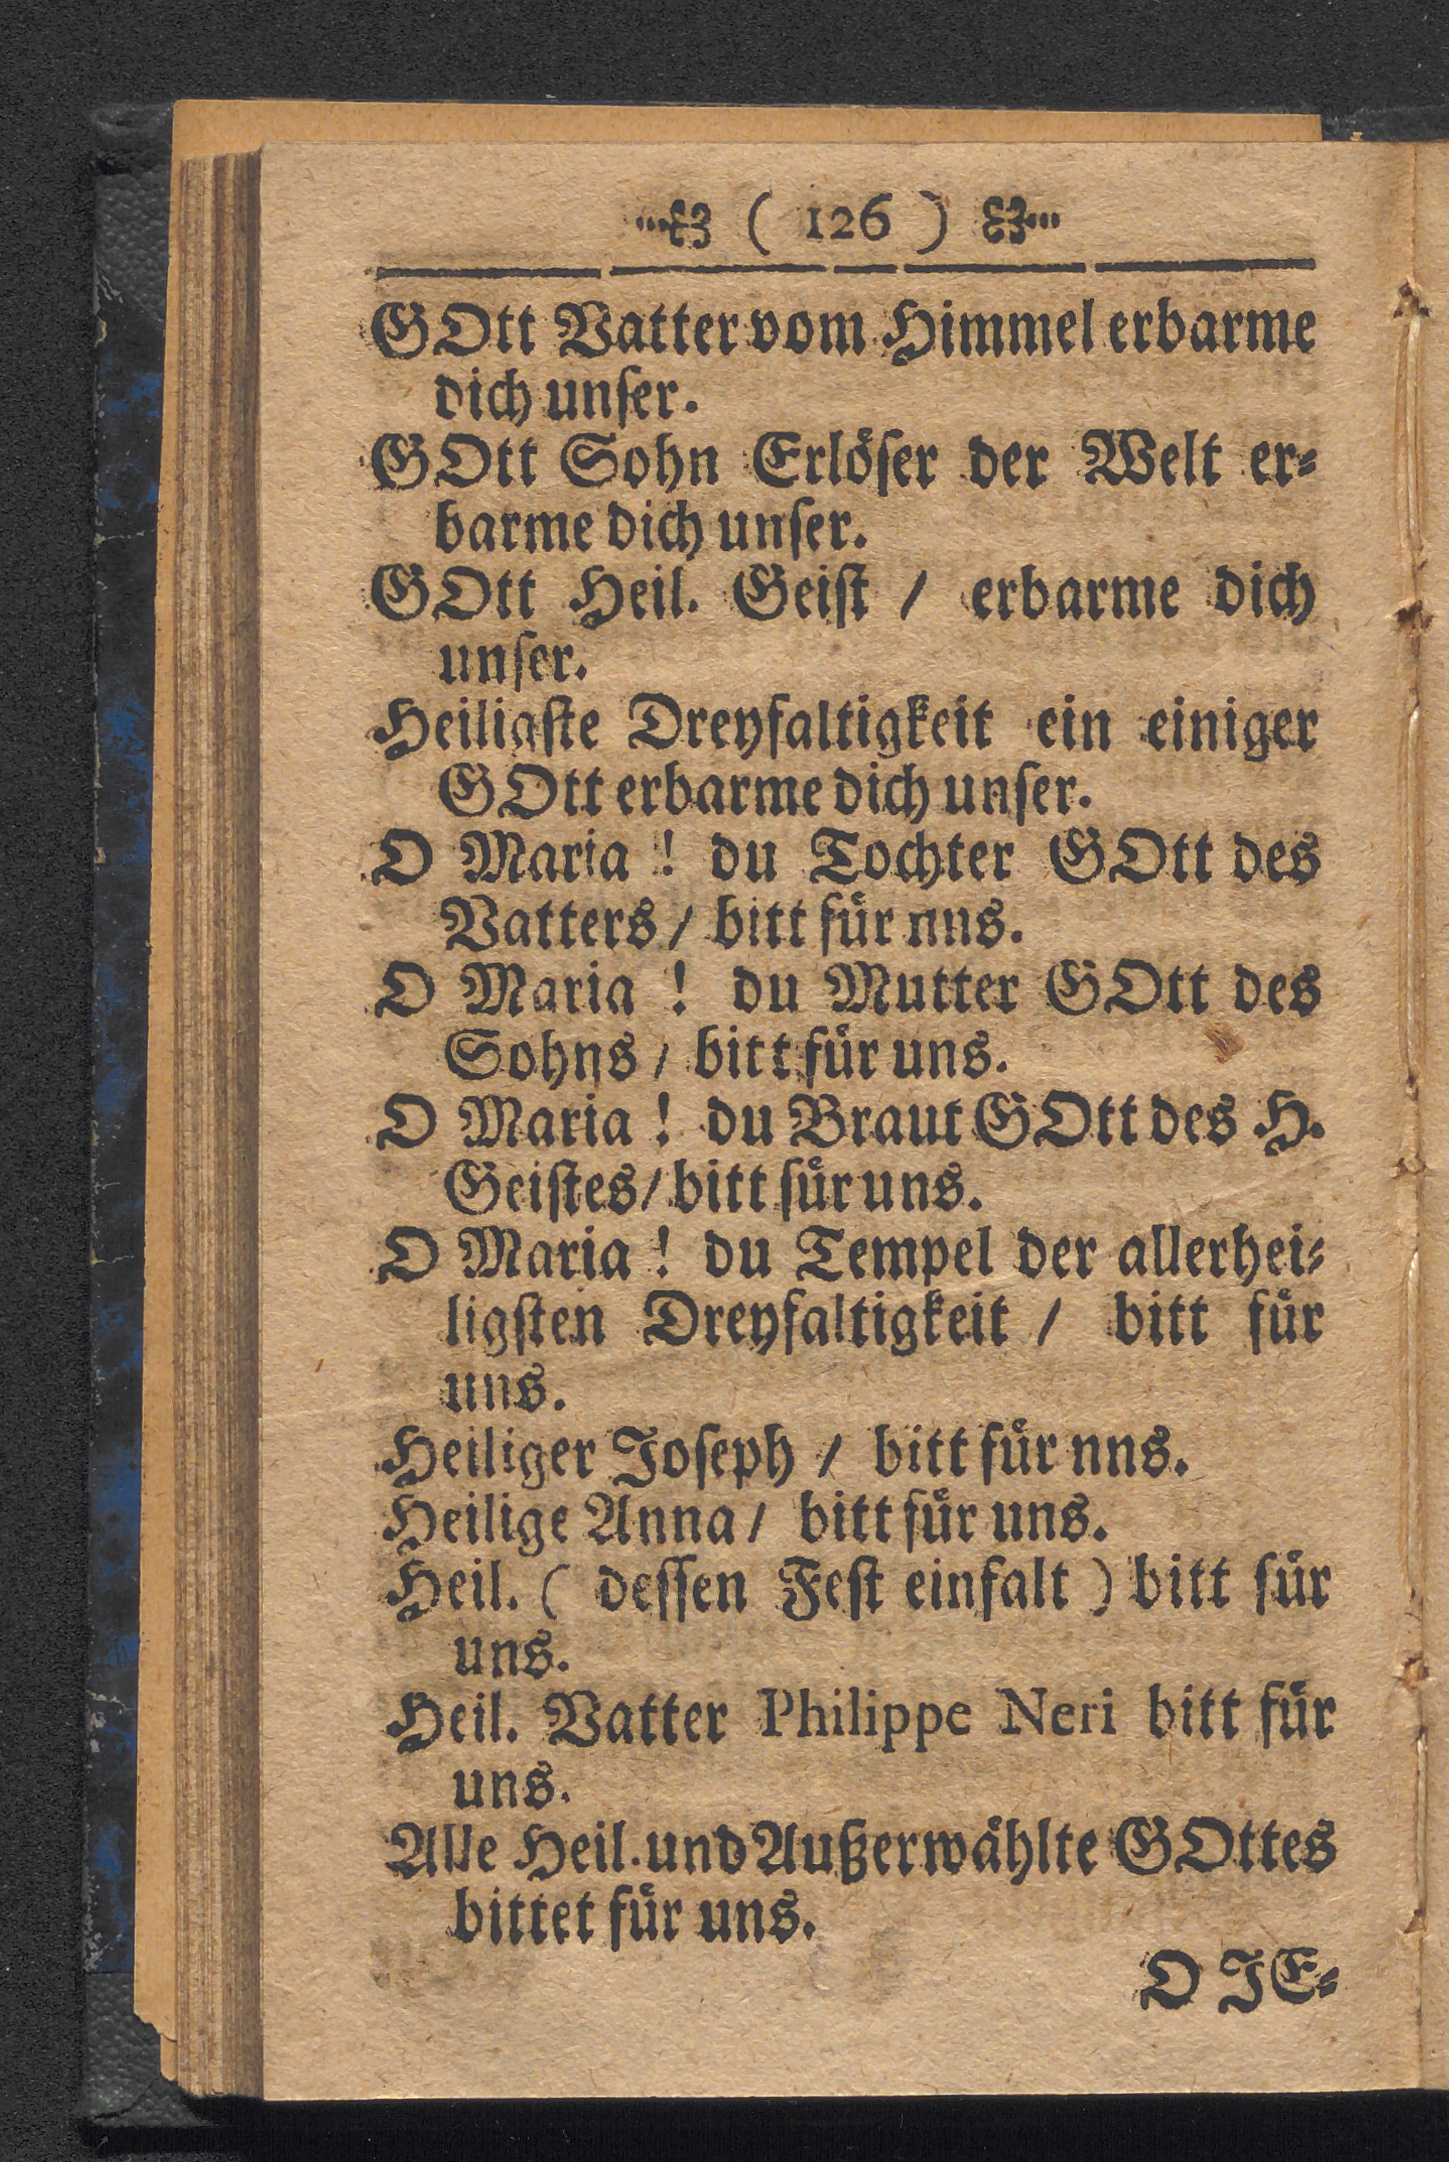 ( 126 )
GOtt Vatter vom Himmel erbarme
dich unſer.
GOtt Sohn Erlöſer der Welt er-
barme dich unſer.
GOtt Heil. Geiſt / erbarme dich
unſer.
Heiligſte Dreyfaltigkeit ein einiger
GOtt erbarme dich unſer.
O Maria ! du Tochter GOtt des
Vatters / bitt für nns.
O Maria ! du Mutter GOtt des
Sohns / bitt für uns.
O Maria ! du Braut GOtt des H.
Geiſtes / bitt ſür uns.
O Maria ! du Tempel der allerhei-
ligſten Dreyfaltigkeit / bitt für
uns.
Heiliger Joſeph / bitt für nns.
Heilige Anna / bitt für uns.
Heil. ( deſſen Feſt einfalt ) bitt ſür
uns.
Heil. Vatter Philippe Neri bitt für
uns.
Alle Heil. und Außerwählte GOttes
bittet für uns.
O JE-